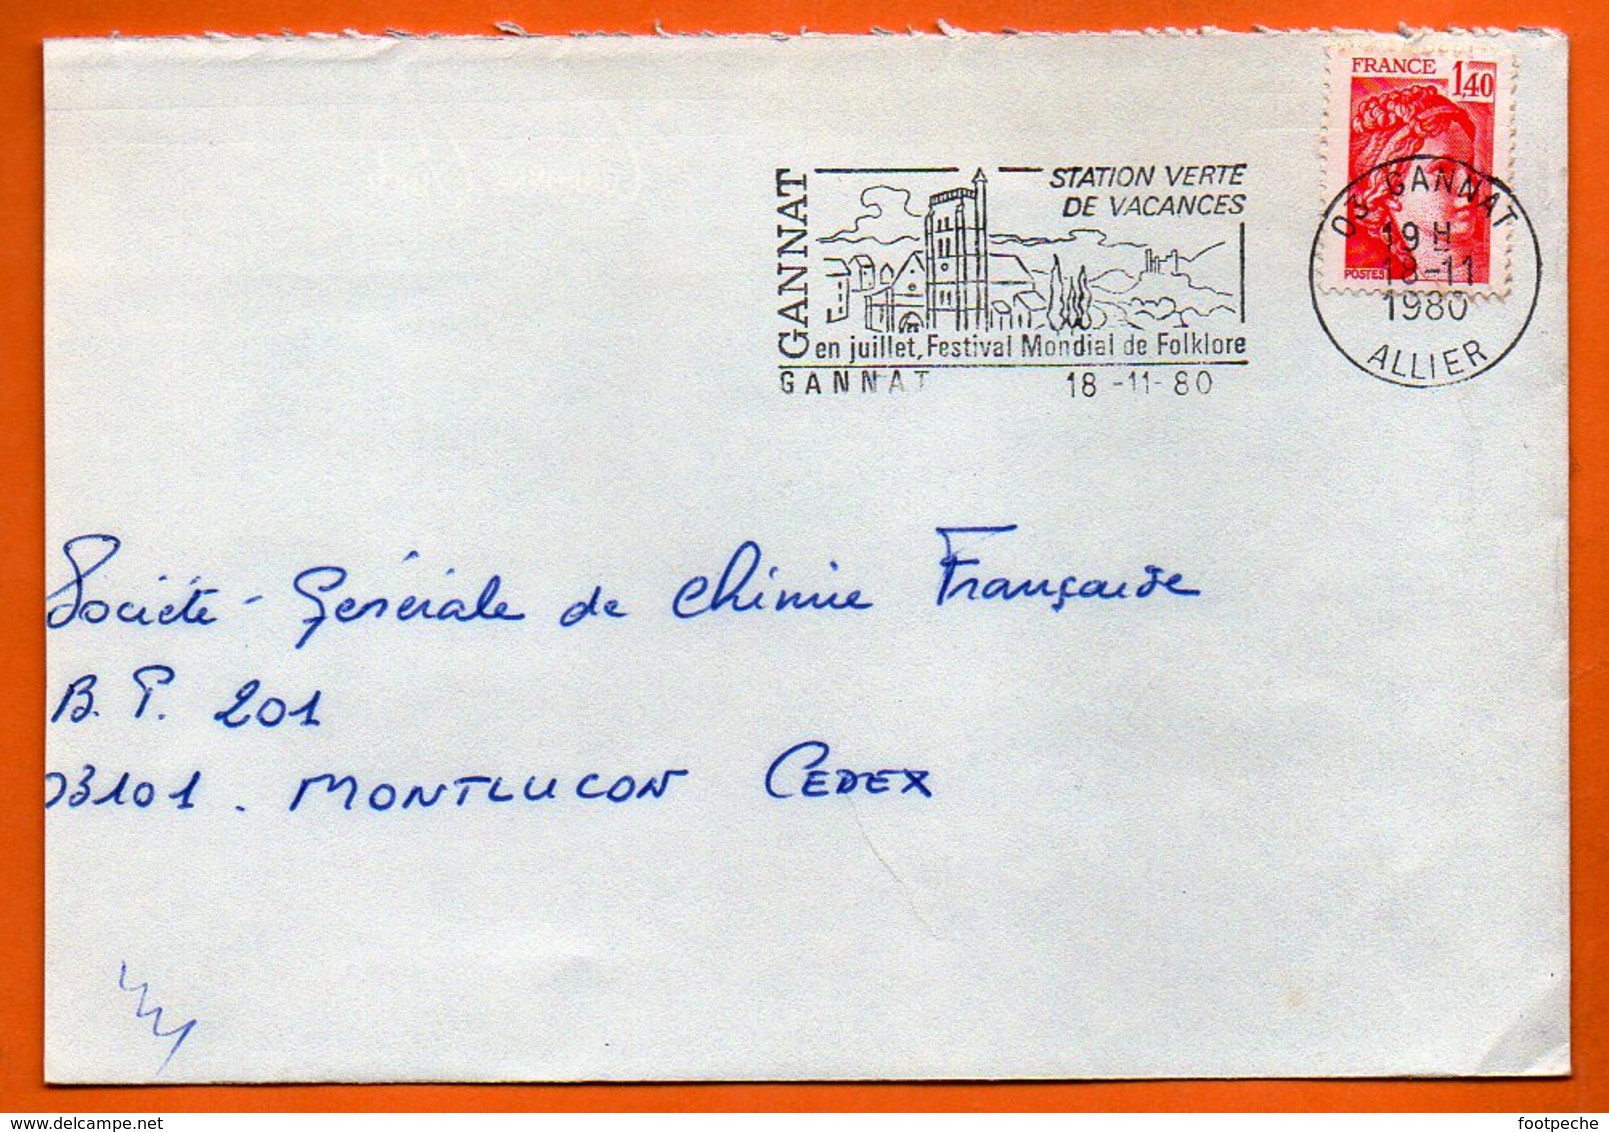 FRANCE 1,40
POSTES
GANNAT
STATION VERTE
DE VACANCES
en juillet, Festival Mondial de Folklore
GANNAT 18-11-80
03 GANNAT
19 H
18-11
1980
ALLIER
Société - Générale de Chimie Française
B. P. 201
03101. MONTLUCON CEDEX
www.delcampe.net
footpeche